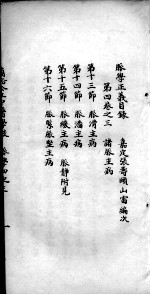 脉學正義目錄　嘉定張壽頤山雷編次
第四卷之三　諸脉主病
第十三節　脉滑主病
第十四節　脉濇主病
第十五節　脉緩主病　脉靜附見
第十六節　脉緊脉堅主病